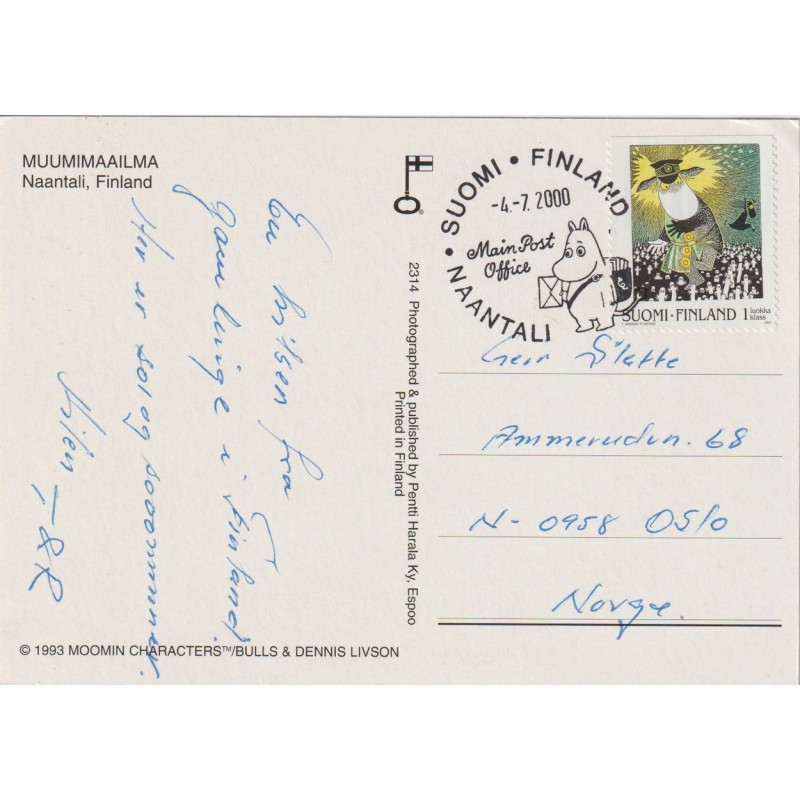 MUUMIMAAILMA
Naantali, Finland
En hilsen fra
gamlinge i Finland.
Her er sol og sooommmer.
Hilsen
SUOMI • FINLAND
-4.-7. 2000
Main Post
Office
NAANTALI
SUOMI·FINLAND 1 luokka
klass
Geir Slette
Ammerudvn. 68
N-0958 OSLO
Norge.
2314 Photographed & published by Pentti Harala Ky, Espoo
Printed in Finland
© 1993 MOOMIN CHARACTERS™/BULLS & DENNIS LIVSON